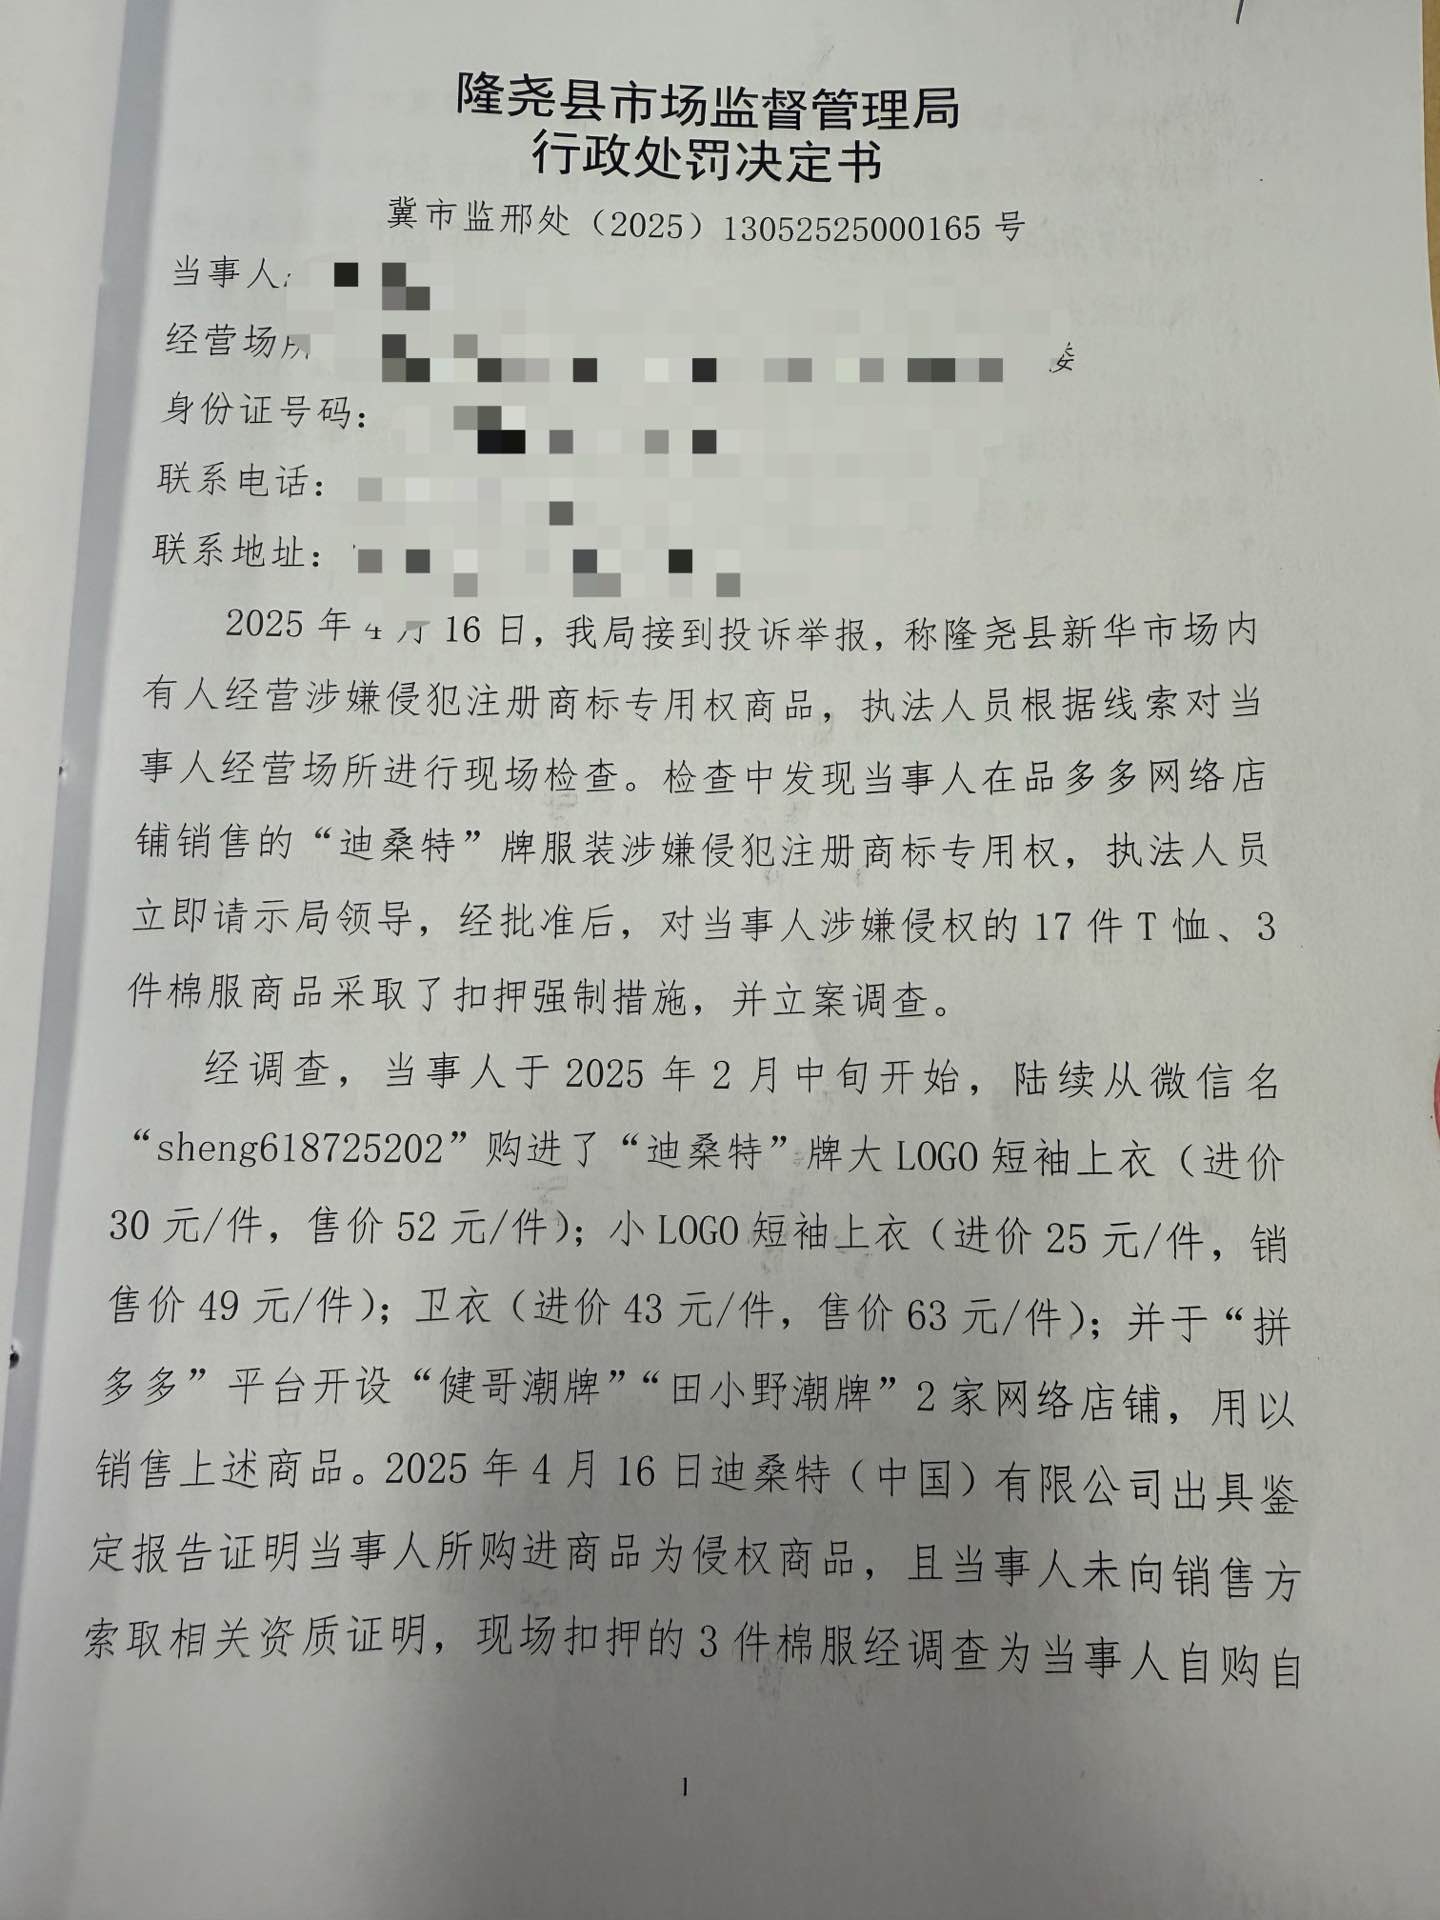 隆尧县市场监督管理局
行政处罚决定书
冀市监邢处（2025）13052525000165 号
当事人:
经营场所
身份证号码：
联系电话：
联系地址：
2025 年 4 月 16 日，我局接到投诉举报，称隆尧县新华市场内
有人经营涉嫌侵犯注册商标专用权商品，执法人员根据线索对当
事人经营场所进行现场检查。检查中发现当事人在品多多网络店
铺销售的“迪桑特”牌服装涉嫌侵犯注册商标专用权，执法人员
立即请示局领导，经批准后，对当事人涉嫌侵权的 17 件 T 恤、3
件棉服商品采取了扣押强制措施，并立案调查。
经调查，当事人于 2025 年 2 月中旬开始，陆续从微信名
“sheng618725202”购进了“迪桑特”牌大 LOGO 短袖上衣（进价
30 元/件，售价 52 元/件）；小 LOGO 短袖上衣（进价 25 元/件，销
售价 49 元/件）；卫衣（进价 43 元/件，售价 63 元/件）；并于“拼
多多”平台开设“健哥潮牌”“田小野潮牌”2 家网络店铺，用以
销售上述商品。2025 年 4 月 16 日迪桑特（中国）有限公司出具鉴
定报告证明当事人所购进商品为侵权商品，且当事人未向销售方
索取相关资质证明，现场扣押的 3 件棉服经调查为当事人自购自
1